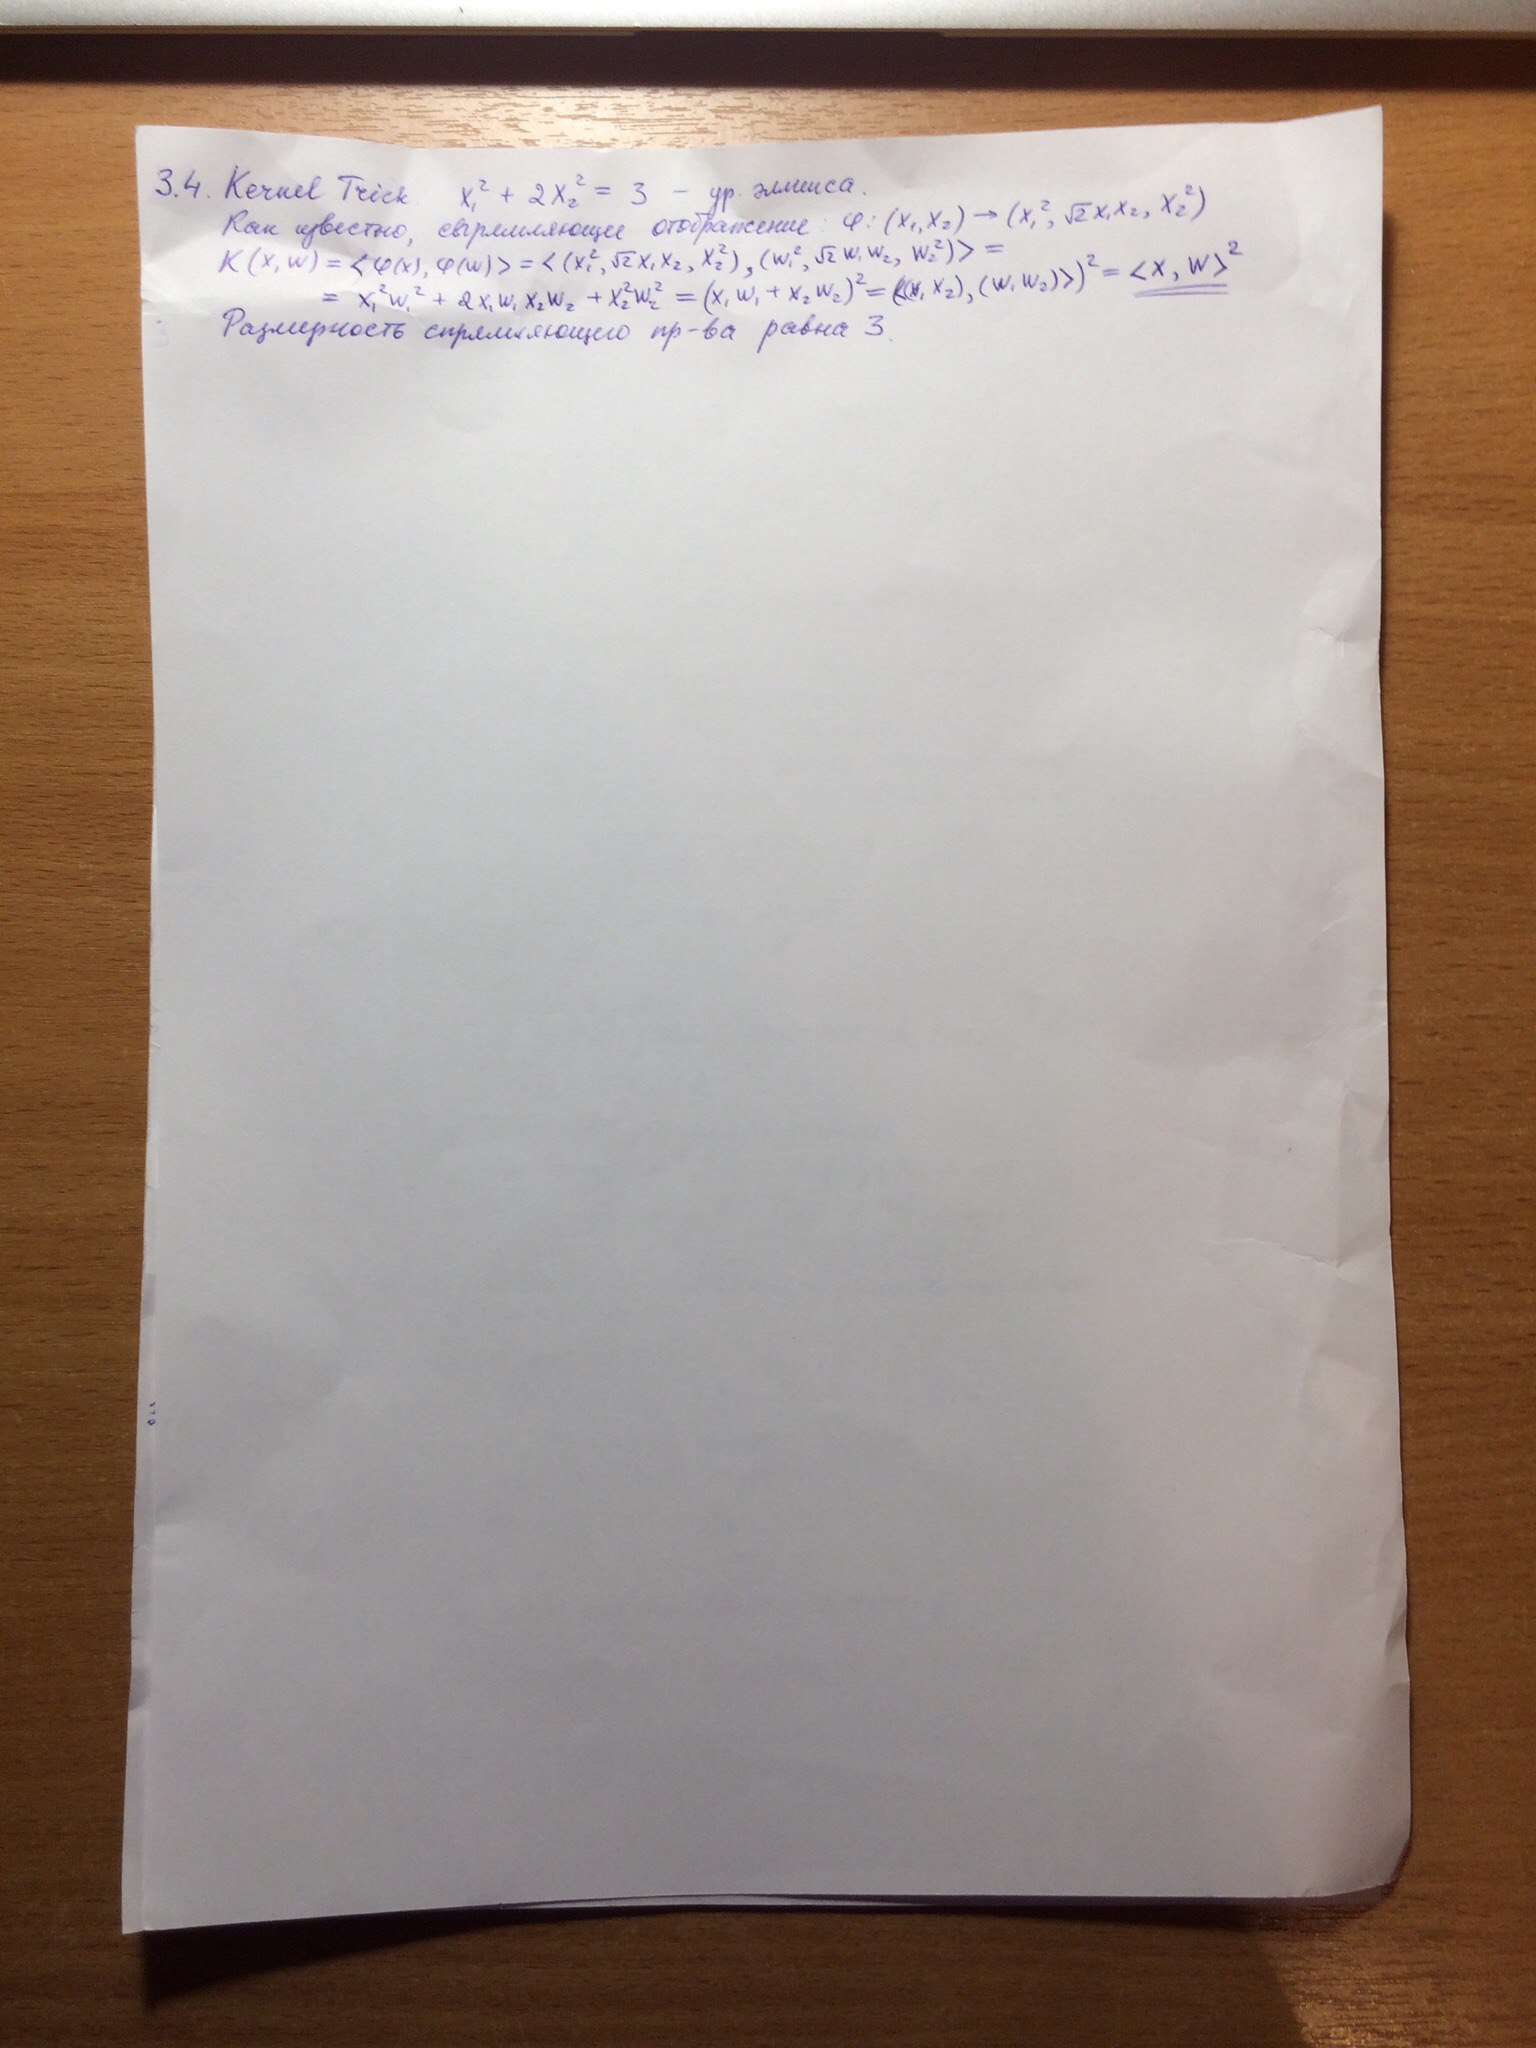 3.4. Kernel Trick x₁² + 2x₂² = 3 – ур. эллипса.
Как известно, спрямляющее отображение: φ: (x₁, x₂) → (x₁², √2x₁x₂, x₂²)
K(x, w) = <φ(x), φ(w)> = <(x₁², √2x₁x₂, x₂²), (w₁², √2w₁w₂, w₂²)> =
= x₁²w₁² + 2x₁w₁x₂w₂ + x₂²w₂² = (x₁w₁ + x₂w₂)² = (<(x₁ x₂), (w₁ w₂)>)² = <x, w>²
Размерность спрямляющего пр-ва равна 3.